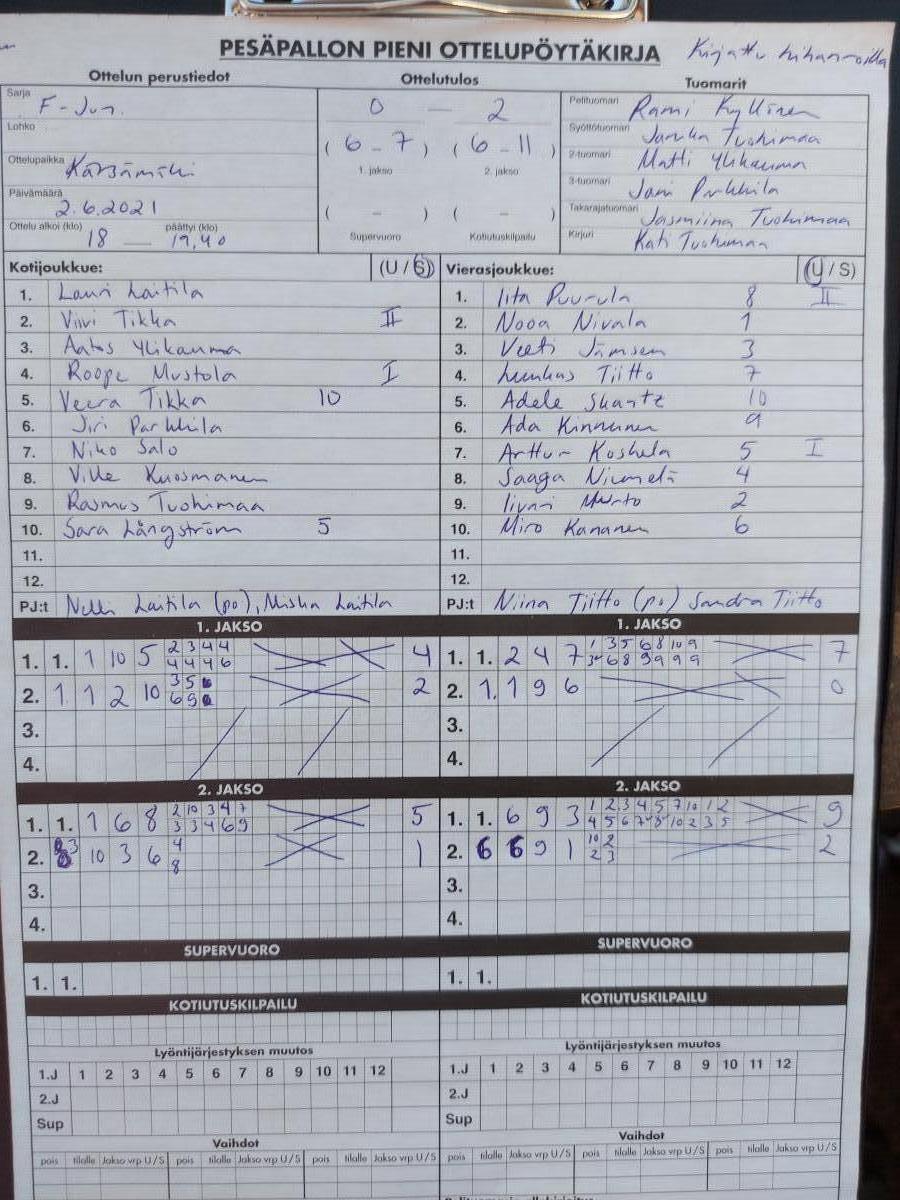 PESÄPALLON PIENI OTTELUPÖYTÄKIRJA
Ottelun perustiedot Ottelutulos Tuomarit
Sarja F-Jun. 0 — 2 Pelituomari Rami Kyllönen
Lohko (6 - 7) (6 - 11) Syöttötuomari Tuohimaa
1. jakso 2. jakso
Ottelupaikka Kärsämäki 2-tuomari Matti Ylikauma
Päivämäärä 2.6.2021 3-tuomari Jani Parkkila
( - ) ( - ) Takarajatuomari Jasmiina Tuohimaa
Ottelu alkoi (klo) 18 — päättyi (klo) 19,40 Supervuoro Kotiutuskilpailu Kirjuri Kati Tuohimaa
Kotijoukkue: (U / S) Vierasjoukkue: (U / S)
1. Lauri Laitila 1. Iita Puurula 8 II
2. Viivi Tikka II 2. Nooa Nivala 1
3. Aatos Ylikauma 3. Veeti Jämsen 3
4. Roope Mustola I 4. Tiitto 7
5. Veera Tikka 10 5. Adele Skantz 10
6. Jiri Parkkila 6. Ada Kinnunen 9
7. Niko Salo 7. Arttur Koskela 5 I
8. Ville Kuosmanen 8. Saaga Niemelä 4
9. Rasmus Tuohimaa 9. Iivari 2
10. Sara Långström 5 10. Miro Kananen 6
11. 11.
12. 12.
PJ:t Nelli Laitila (po), Miska Laitila PJ:t Niina Tiitto (po) Sandra Tiitto
1. JAKSO 1. JAKSO
1. 1. 1 10 5 2 3 4 4 4 1. 1. 2 4 7 1 3 5 6 8 10 9 7
4 4 4 6 6 8 9 9 9 9
2. 1 1 2 10 3 5 2 2. 1. 1 9 6 0
6 9
3. 3.
4. 4.
2. JAKSO 2. JAKSO
1. 1. 1 6 8 2 10 3 4 7 5 1. 1. 6 9 3 1 2 3 4 5 7 10 1 2 9
3 3 4 6 9 4 5 6 7 8 10 2 3 5
2. 10 3 6 4 1 2. 6 6 9 1 10 2 2
8 2 3
3. 3.
4. 4.
SUPERVUORO SUPERVUORO
1. 1. 1. 1.
KOTIUTUSKILPAILU KOTIUTUSKILPAILU
Lyöntijärjestyksen muutos Lyöntijärjestyksen muutos
1.J 1 2 3 4 5 6 7 8 9 10 11 12 1.J 1 2 3 4 5 6 7 8 9 10 11 12
2.J 2.J
Sup Sup
Vaihdot Vaihdot
pois tilalle Jakso vrp U/S pois tilalle Jakso vrp U/S pois tilalle Jakso vrp U/S pois tilalle Jakso vrp U/S pois tilalle Jakso vrp U/S pois tilalle Jakso vrp U/S